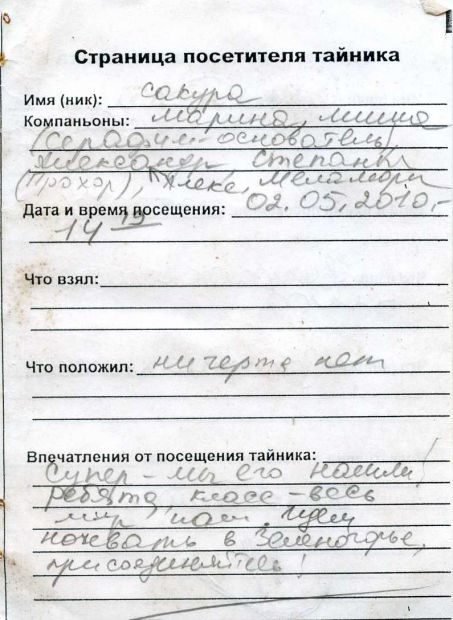 Страница посетителя тайника
Имя (ник): сакура
Компаньоны: марина, миша
(Серафим-основатель)
Александр, Степаны
(Прохор), Алекс, Меламори
Дата и время посещения: 02.05.2010,-
14 15
Что взял:
Что положил: ни черта нет
Впечатления от посещения тайника:
Супер - мы его нашли!
ребята, класс - весь
мир наш. Идем
ночевать в Зеленогорье,
присоединяйтесь!